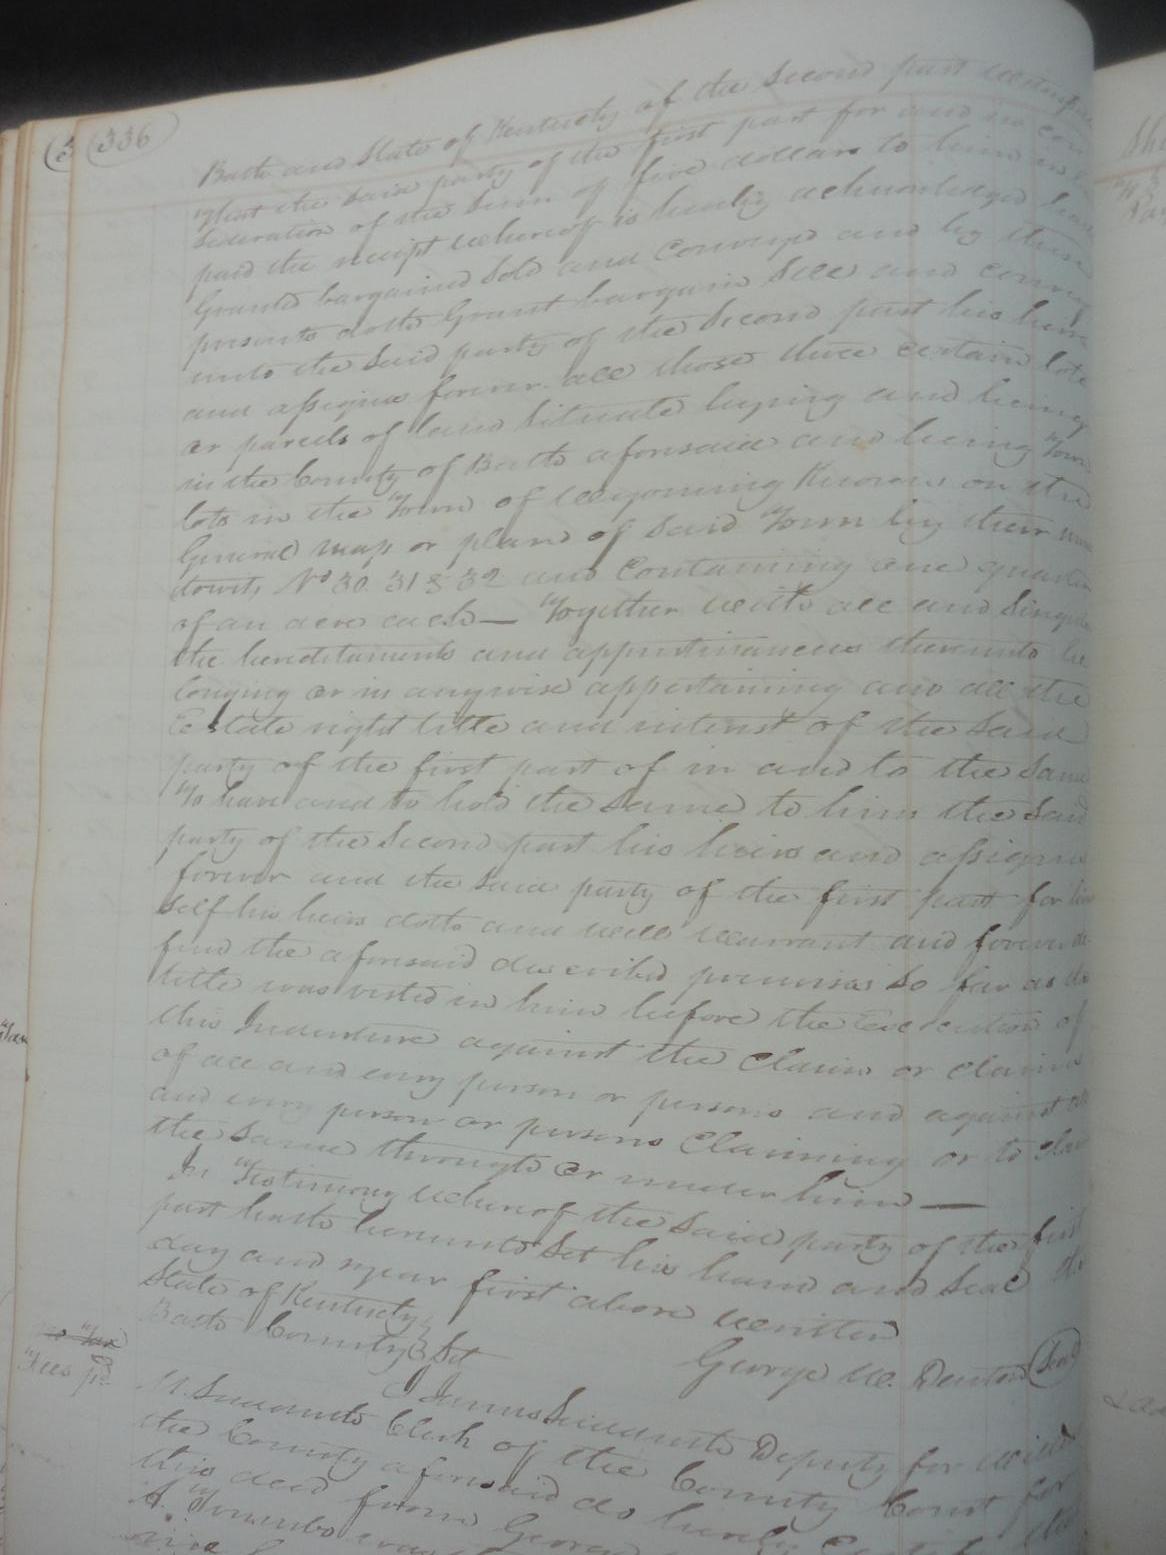 336
Bath and State of Kentucky of the Second part Witnesseth
That the said party of the first part for and in con
sideration of the Sum of five dollars to him in
paid the receipt whereof is hereby acknowledged hath
Granted bargained Sold and Conveyed and by these
presents doth Grant bargain Sell and convey
unto the Said party of the Second part his heirs
and assigns forever all those three certain lots
or parcels of land Situate lying and being
in the County of Bath aforesaid and being Town
lots in the Town of Wyoming Known on the
General map or plan of Said Town by their num
No 30 31 & 32 and Containing one quarter
of an acre each — Together with all and Singular
the hereditaments and appurtinances thereunto be
longing or in anywise appertaining and all the
Estate right title and interest of the Said
party of the first part of in and to the Same
To have and to hold the Same to him the Said
party of the Second part his heirs and assigns
forever and the Said party of the first part for him
Self his heirs doth and will Warrant and forever de
fend the aforesaid described premises So far as the
title was vested in him before the Execution of
this Indenture against the Claim or Claims
of all and every person or persons and against all
and every person or persons Claiming or to claim
the Same through or under him —
In Testimony Whereof the Said party of the first
part hath hereunto Set his hand and Seal the
day and year first above Written
George W. Denton Seal
State of Kentucky
Bath County Sct
Tax
Fees pd
I James Sudduth Deputy for William
M. Sudduth Clerk of the County Court for
the County aforesaid do hereby Certify that
this deed from George
A. was